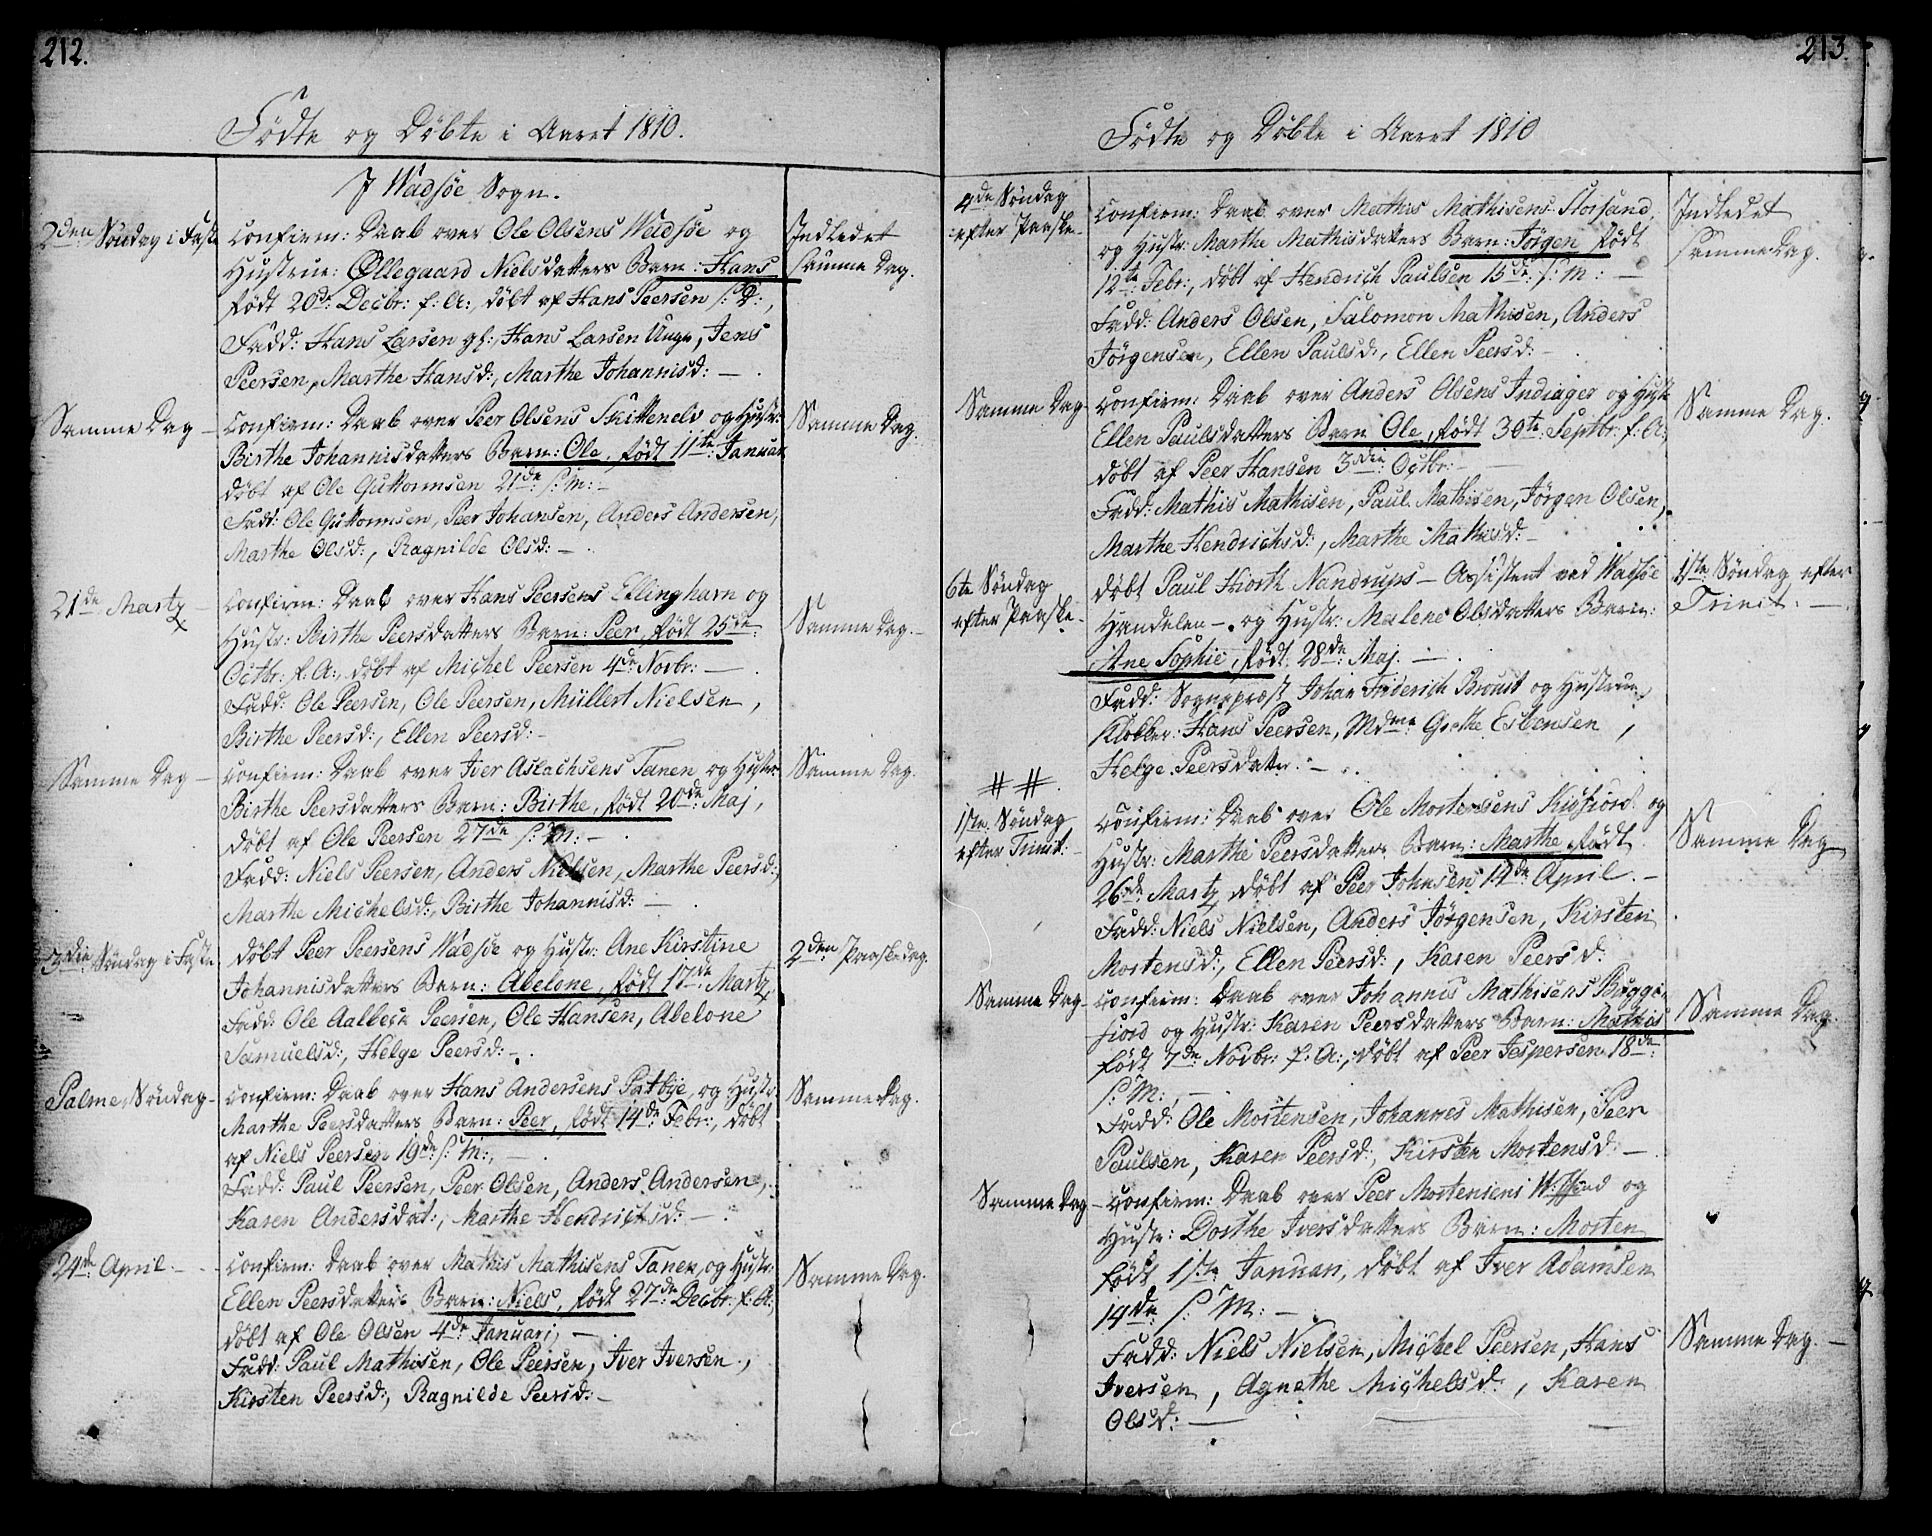 212.
Födte og Döbte i Aaret 1810.
I Wadsöe Sogn.
2den Söndag i Faste
Confirm: Daab over Ole Olsens Wadsöe og
Hustrue: Øllegaard Nielsdatters Barn: Hans
född 20de Decbr: f: A:, döbt af Hans Peersen s: D:,
Fadd: Hans Larsen gl:, Hans Larsen Unge, Jens
Peersen, Marthe Hansd:, Marthe Johannisd: —
Indledet
samme Dag.
Samme Dag —
Confirm: Daab over Peer Olsens Skittenelv og Hustr:
Birthe Johannisdatters Barn: Ole, födt 11te Januar
döbt af Ole Guttormsen 21de s: M: —
Fadd: Ole Guttormsen, Peer Johansen, Anders Andersen,
Marthe Olsd:, Ragnilde Olsd: —
Samme Dag.
21de Martz —
Confirm: Daab over Hans Peersens Ellinghavn og
Hustr: Birthe Peersdatters Barn: Peer, födt 25de
Octbr: f: A:, döbt af Michel Peersen 4de Novbr: —
Fadd: Ole Peersen, Ole Peersen, Müllert Nielsen,
Birthe Peersd:, Ellen Peersd: —
Samme Dag. —
Samme Dag —
Confirm: Daab over Iver Aslachsens Tanen og Hustr:
Birthe Peersdatters Barn: Birthe, födt 20de Maj,
döbt af Ole Peersen 27de s: M: —
Fadd: Niels Peersen, Anders Nielsen, Marthe Peersd:,
Marthe Michelsd:, Birthe Johannisd: —
Samme Dag.
3die Söndag i Faste
döbt Peer Peersens Wadsöe og Hustr: Ane Kirstine
Johannisdatters Barn: Abelone, födt 17de Martz
Fadd: Ole Aalbech Peersen, Ole Hansen, Abelone
Samuelsd:, Helge Peersd: —
2den Paaskedag.
Palme Söndag —
Confirm: Daab over Hans Andersens Patbye, og Hustr:
Marthe Peersdatters Barn: Peer, födt 14de Febr:, döbt
af Niels Peersen 19de s: M:, —
Fadd: Paul Peersen, Peer Olsen, Anders Andersen,
Karen Andersdat:, Marthe Hendrichsd: —
Samme Dag.
24de April —
Confirm: Daab over Mathis Mathisens Tanen, og Hustr:
Ellen Peersdatters Barn: Niels, födt 27de Decbr: f: A:,
döbt af Ole Olsen 4de Januari, —
Fadd: Paul Mathisen, Ole Peersen, Iver Iversen,
Kirsten Peersd:, Ragnilde Peersd: —
Samme Dag.
213.
Födte og Döbte i Aaret 1810
4de Söndag
efter Paaske —
Confirm: Daab over Mathis Mathisens Storsand,
og Hustr: Marthe Mathisdatters Barn: Jörgen födt
12te Febr:, döbt af Hendrich Paulsen 15de s: M: —
Fadd: Anders Olsen, Salomon Mathisen, Anders
Jörgensen, Ellen Paulsd:, Ellen Peersd: —
Indledet
samme Dag.
Samme Dag —
Confirm: Daab over Anders Olsens Indiager og Hustr:
Ellen Paulsdatters Barn Ole, födt 30te Septbr: f: A:,
döbt af Peer Hansen 3die Octbr: —
Fadd: Mathis Mathisen, Paul Mathisen, Jörgen Olsen,
Marthe Hendrichsd:, Marthe Mathisd: —
Samme Dag.
6te Söndag
efter Paaske —
döbt Paul Hiorth Nandrups — Assistent ved Wadsöe
Handelen — og Hustr: Malene Olsdatters Barn:
Ane Sophie, födt 28de Maj. —
Fadd: Sogneprost Johan Friderich Broust og Hustrue,
Klokker: Hans Peersen, Mdme Grethe Esbensen,
Helge Peersdatter. —
1ste Söndag efter
Trinit: —
# #.
1ste Söndag
efter Trinit: —
Confirm: Daab over Ole Mortensens Kiöfiord og
Hustr: Marthe Peersdatters Barn: Marthe födt
26de Martz döbt af Peer Johnsen 14de April. —
Fadd: Niels Nielsen, Anders Jörgensen, Kirsten
Mortensd:, Ellen Peersd:, Karen Peersd:
Samme Dag
Samme Dag —
Confirm: Daab over Johannis Mathisens Bugge-
fiord og Hustr: Karen Peersdatters Barn: Mathis
födt 7de Novbr: f: A:, döbt af Peer Jespersen 18de
s: M:, —
Fadd: Ole Mortensen, Johannes Mathisen, Peer
Paulsen, Karen Peersd:, Kirsten Mortensd: —
Samme Dag.
Samme Dag —
Confirm: Daab over Peer Mortensens og
Hustr: Dorthe Iversdatters Barn: Morten
födt 1ste Januari, döbt af Iver Adamsen
19de s: M: —
Fadd: Niels Nielsen, Michel Peersen, Hans
Iversen, Agnethe Michelsd:, Karen
Olsd: —
Samme Dag. —